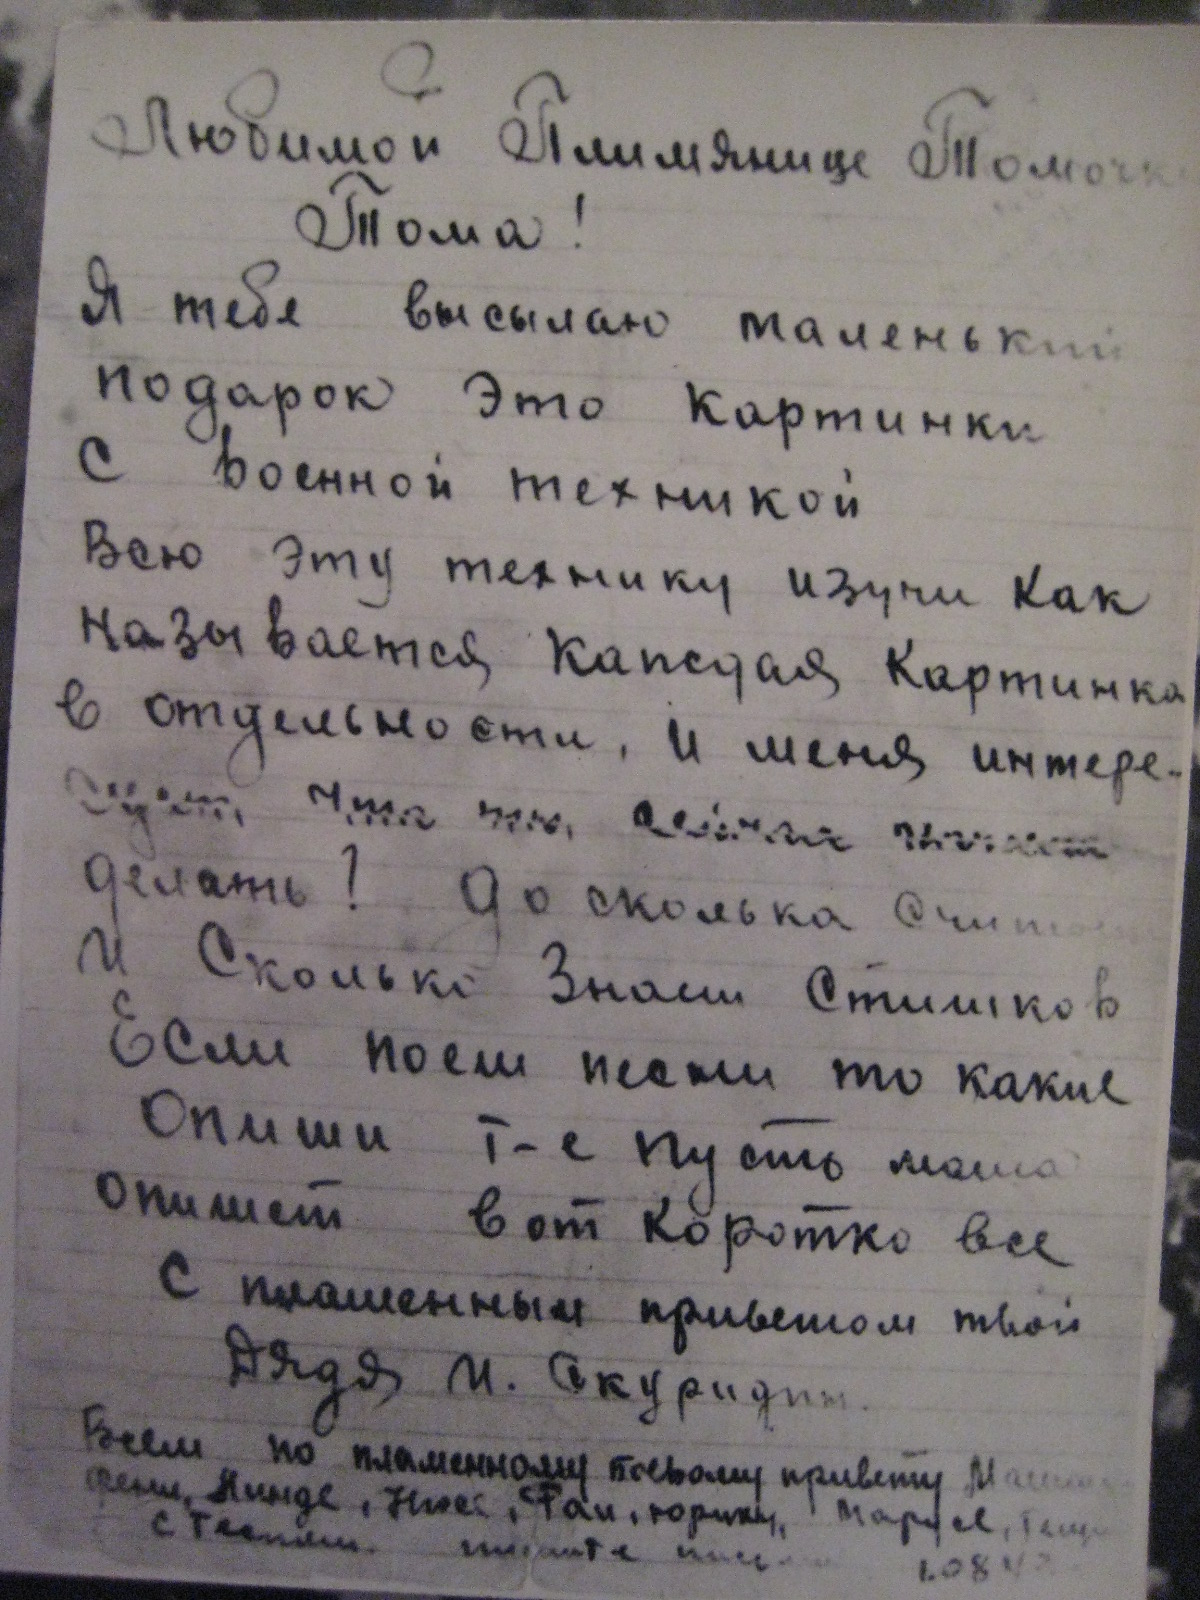 Любимой Плимянице Томочке
Тома!
Я тебе высылаю маленький
подарок Это Картинки
С военной техникой
Всю эту технику изучи Как
Называется Каждая Картинка
в отдельности, И меня интере-
сует, что ты, сейчас можешь
делать? До сколька Считаешь
И Сколько Знаеш Стишков
Если поеш песни то какие
Опиши т-е пусть мама
опишет вот Коротко все
С пламенным приветом твой
Дядя И. Скуридин.
Всем по пламенному боевому привету
Нинде, Нюсе, Таи, юрику, Марусе,
пишите 1.08.4